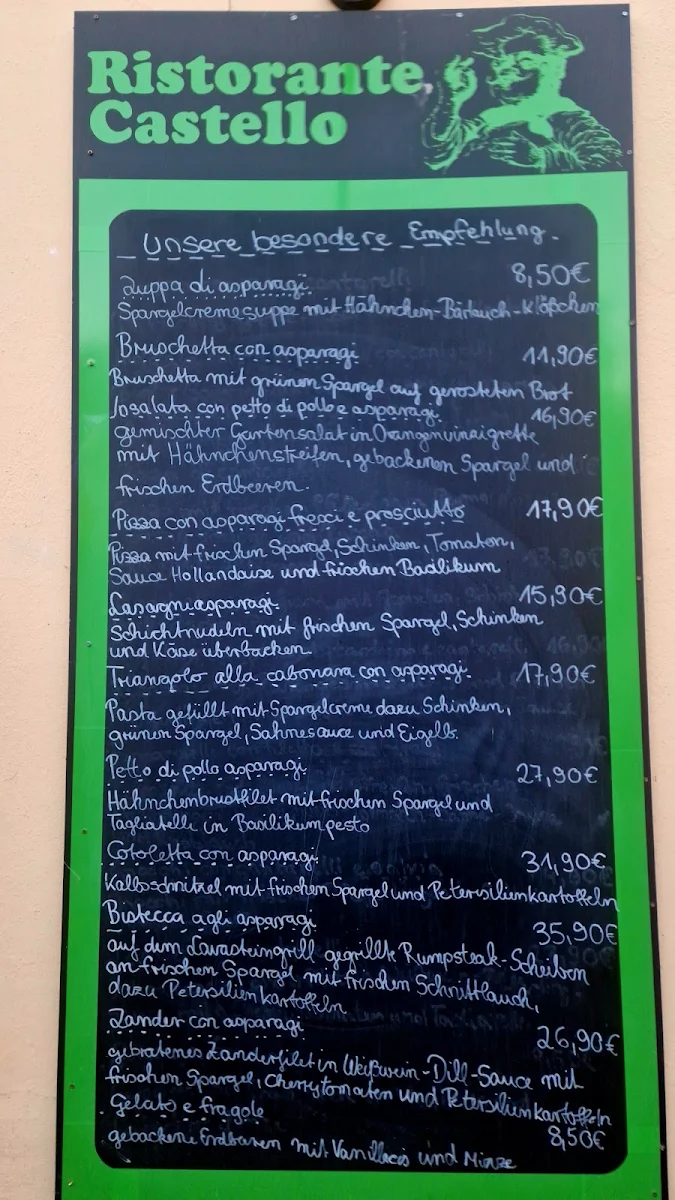 Ristorante
Castello
Unsere besondere Empfehlung
Zuppa di asparagi 8,50€
Spargelcremesuppe mit Hähnchen-Bärlauch-Klößchen
Bruschetta con asparagi 11,90€
Bruschetta mit grünem Spargel auf gerösteten Brot
Insalata con petto di pollo e asparagi 16,90€
gemischter Gartensalat in Orangenvinaigrette
mit Hähnchenstreifen, gebackenen Spargel und
frischen Erdbeeren.
Pizza con asparagi fresci e prosciutto 17,90€
Pizza mit frischen Spargel, Schinken, Tomaten,
Sauce Hollandaise und frischen Basilikum
Lasagni asparagi 15,90€
Schichtnudeln mit frischen Spargel, Schinken
und Käse überbacken
Triangolo alla cabonara con asparagi 17,90€
Pasta gefüllt mit Spargelcreme dazu Schinken,
grünen Spargel, Sahnesauce und Eigelb.
Petto di pollo asparagi 27,90€
Hähnchenbrustfilet mit frischen Spargel und
Tagliatelle in Basilikumpesto
Cotoletta con asparagi 31,90€
Kalbschnitzel mit frischen Spargel und Petersilienkartoffeln
Bistecca agli asparagi 35,90€
auf dem Lavasteingrill gegrillte Rumpsteak-Scheiben
an frischen Spargel mit frischen Schnittlauch,
dazu Petersilienkartoffeln
Zander con asparagi 26,90€
gebratenes Zanderfilet in Weißwein-Dill-Sauce mit
frischen Spargel, Cherrytomaten und Petersilienkartoffeln
Gelato e fragole 8,50€
gebackene Erdbeeren mit Vanilleeis und Minze